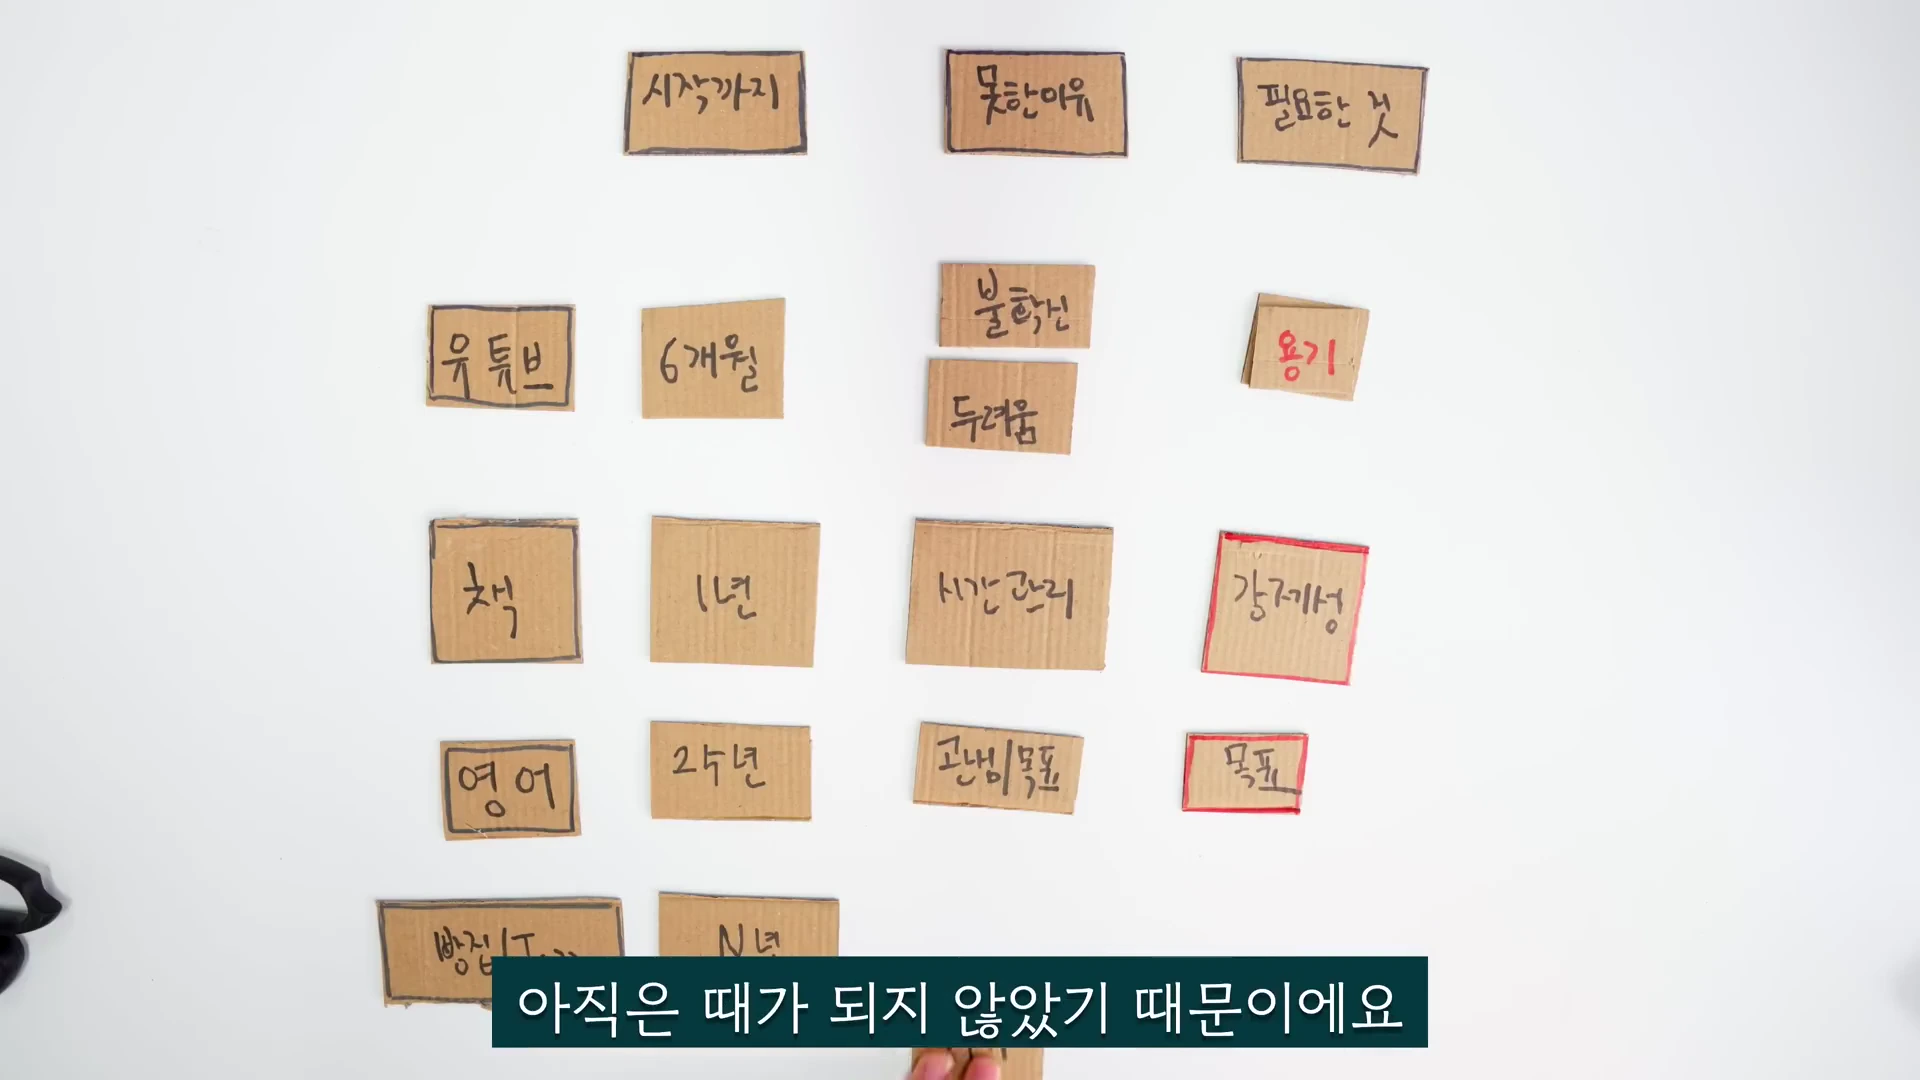 시작까지
못한이유
필요한 것
유튜브
6개월
불확신
두려움
용기
책
1년
시간관리
강제성
영어
25년
고난이목표
목표
빵집
N년
아직은 때가 되지 않았기 때문이에요